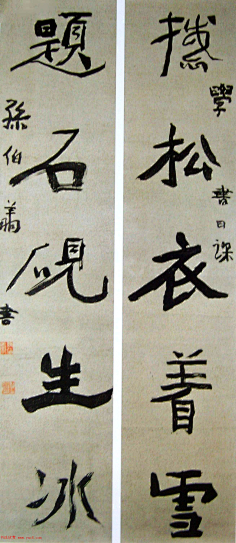 撼松衣着雪
學書日課
題石硯生冰
孫伯翔書